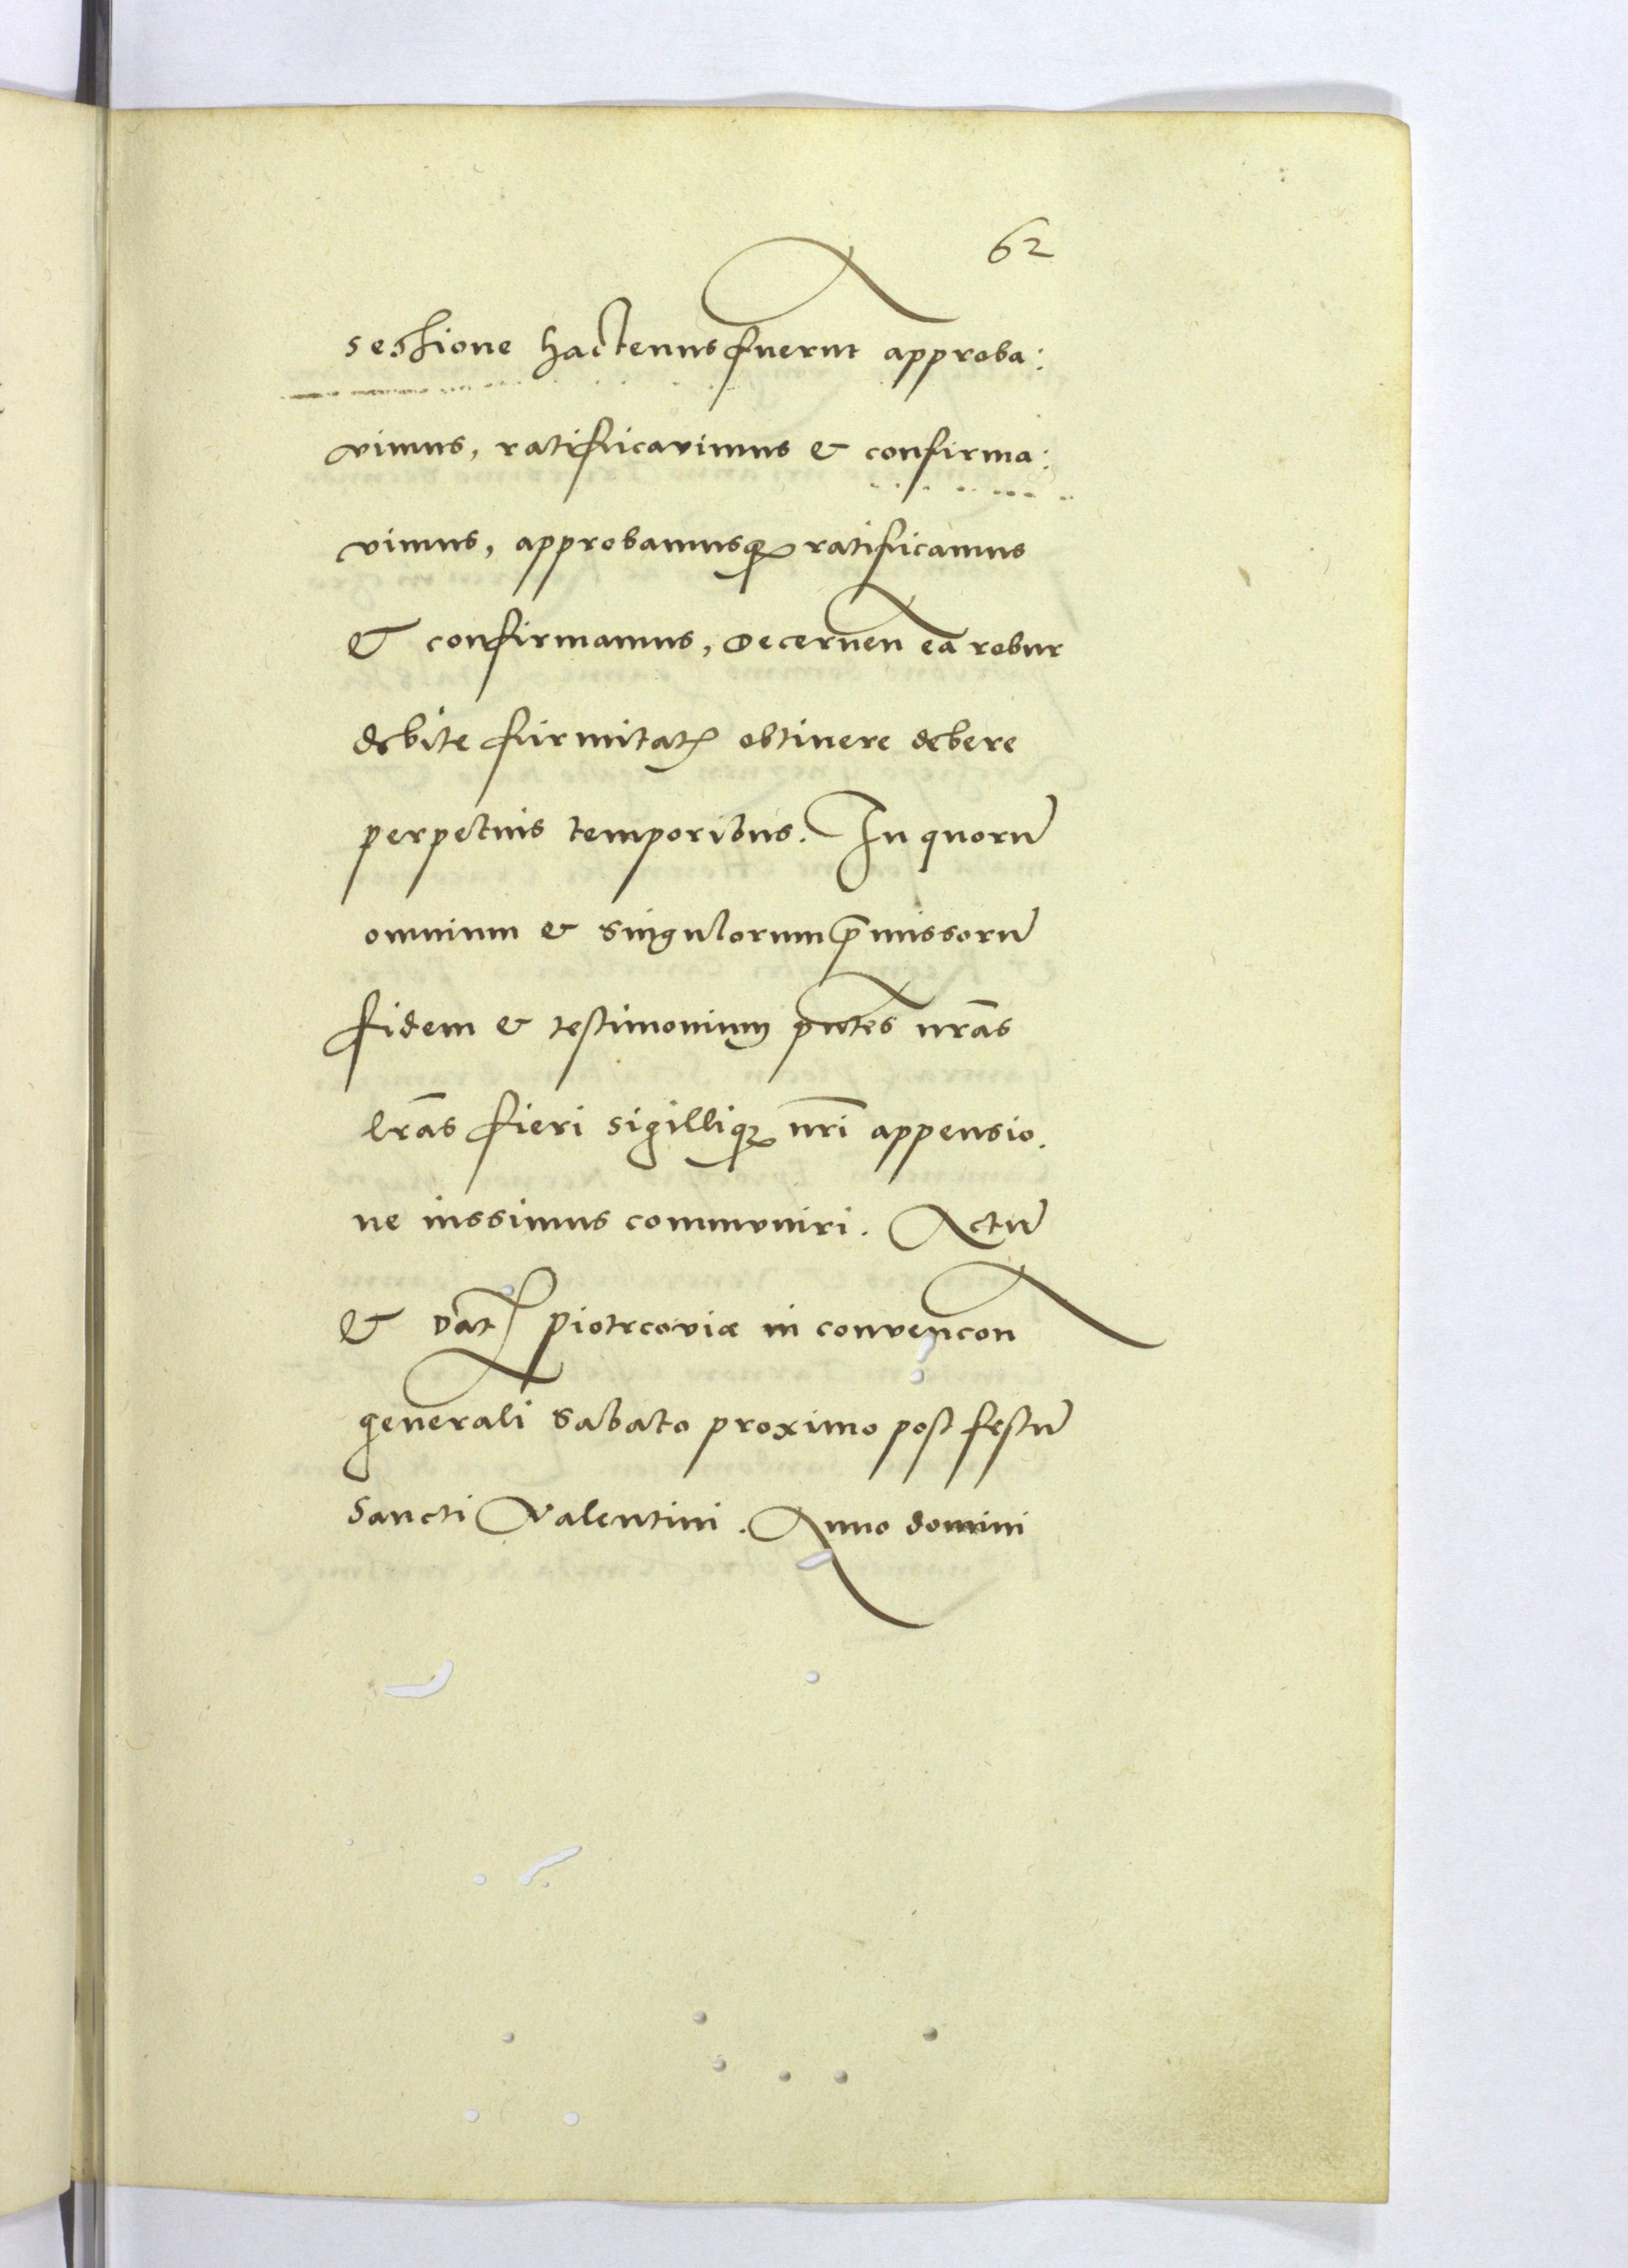 62
sessione hactenus fuerut approba:
vimus, ratificavimus & confirma:
vimus, approbamusq ratificamus
& confirmamus, decernen ea robur
debite firmitatꝭ obtinere debere
perpetuis temporibus. In quorū
omnium & singulorum p̄missorū
fidem & testimonium pn̄tes nr̄as
lr̄as fieri sigilliq nr̄i appensio.
ne iussimus communiri. Actū
& Dat Piotrcoviæ in convencon
generali Sabato proximo post festū
Sancti Valentini. Anno domini